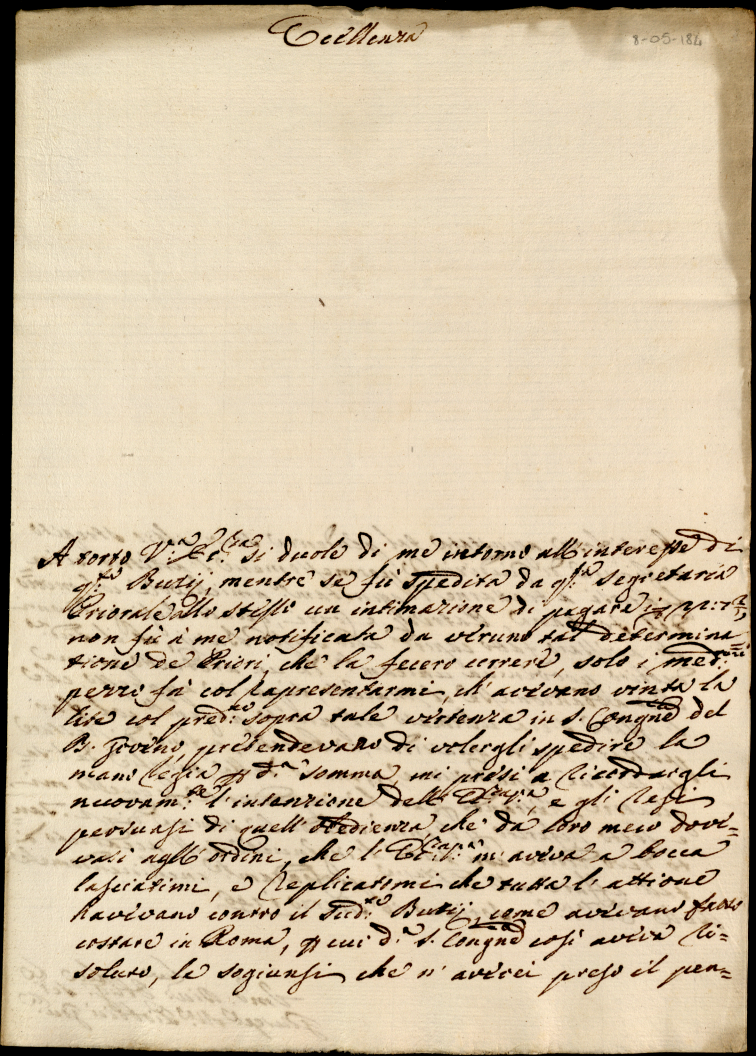 Eccellenza
8-05-184
A torto V.ra Ecc.za si duole di me intorno all'interesse di
q.sto Butij, mentre se fù spedita da q.sta Segretaria
Priorale allo stesso un intimazione di pagare
non fù à me notificata da veruno tal determina
tione de Priori, che la fecero correre, solo i med.mi
pezzo fà col rapresentarmi, ch'avevano vinta la
lite col pred.to sopra tale vertenza in S. Congne del
B. Governo, pretendevano di volergli spedire la
mano Regia p d.a somma, mi presi a ricordargli
nuovam.te l'intenzione dell' e gli resi
persuasi di quell'obedienza, che dà loro meco dove-
vasi agl'ordini, che l' m'aveva a bocca
lasciatimi, e replicatomi che tutta l'attione
havevano contro il sud.to Butij, come avevano fatto
costare in Roma, p cui d.a S. Congne così aveva ri=
soluto, le sogiunsi che n'averei preso il pen=